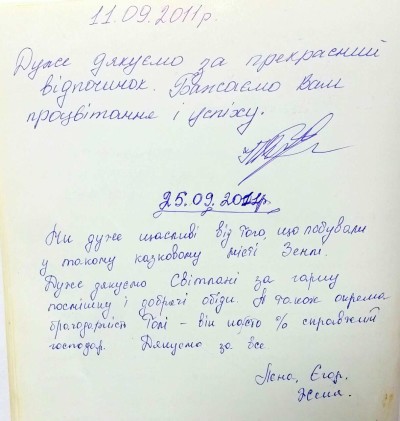 11.09.2011р.
Дуже дякуємо за прекрасний
відпочинок. Бажаємо Вам
процвітання і успіху.
25.09.2011р.
Ми дуже щасливі від того, що побували
у такому казковому місті Землі.
Дуже дякуємо Світлані за гарну
посмішку і добрячі обіди. А також окрема
благодарність Толі – він просто % справжній
господар. Дякуємо за все
Лєна, Єгор,